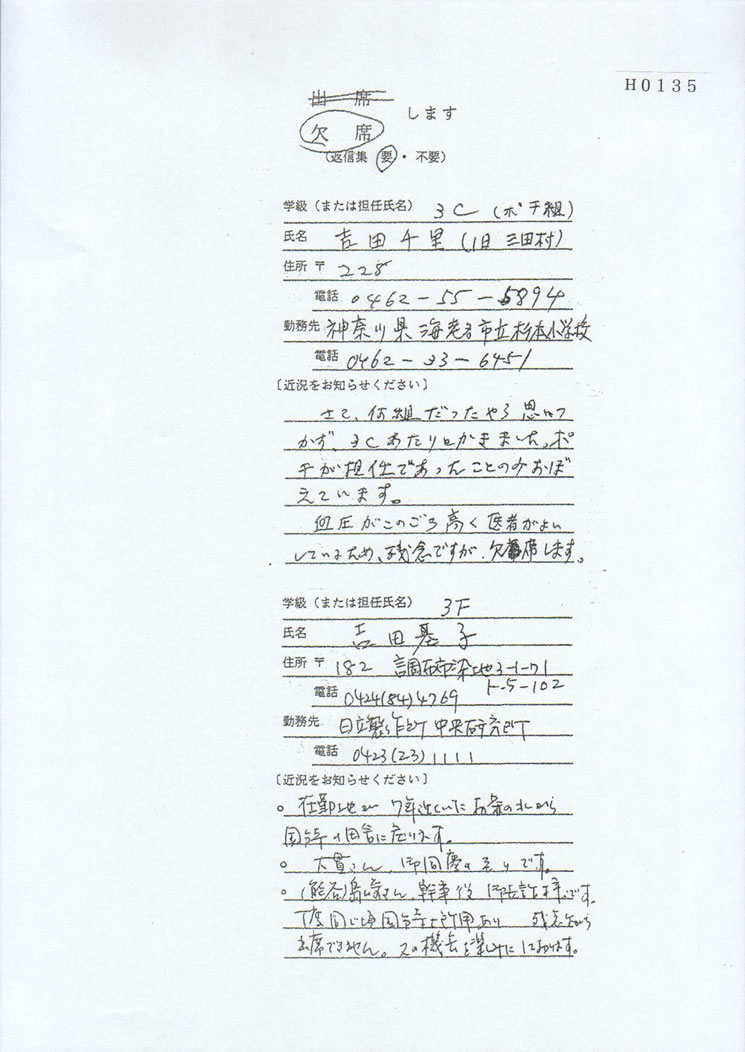 H0135
出席
欠席 します
(返信集 要・不要)
学級(または担任氏名) 3C (ポチ組)
氏名 吉田千里 (旧 三田村)
住所 〒 228
電話 0462-55-5894
勤務先 神奈川県海老名市立杉本小学校
電話 0462-33-6451
〔近況をお知らせください〕
さて、何組だったやら思いつ
かず、3Cあたりとかきました。ポ
チが担任であったことのみおぼ
えています。
血圧がこのごろ高く医者がよい
しているため、残念ですが、欠席します。
学級(または担任氏名) 3F
氏名 吉田基子
住所 〒 182 調布市染地3-1-71
ト-5-102
電話 0424(84)4769
勤務先 日立製作所 中央研究所
電話 0423(23)1111
〔近況をお知らせください〕
○ 在勤地が 7年近くいたお茶の水から
国分寺の田舎に戻ります。
○ 大貫さん、御同慶の至りです。
○ (熊谷)島崎さん、幹事役 御苦労様です。
丁度同じ頃国分寺で所用あり 残念ながら
出席できません。又の機会を楽しみにしております。